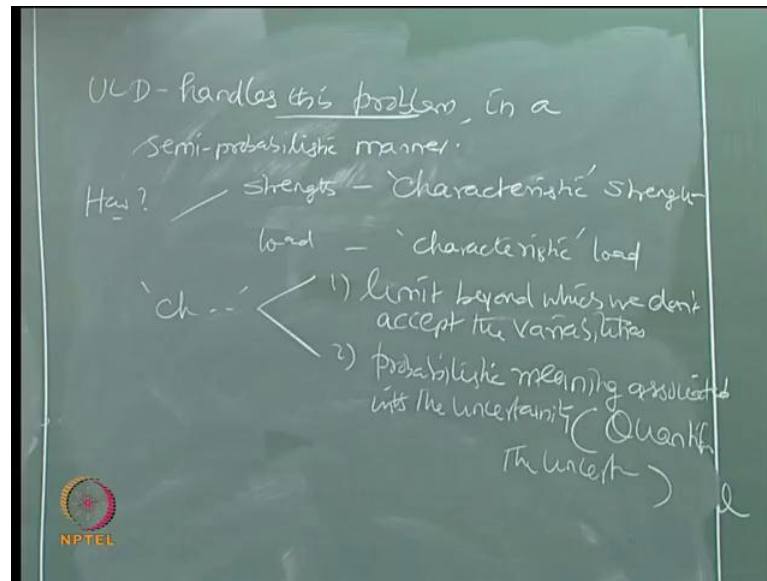 ULD - handles this problem, in a
semi-probabilistic manner.
How? strength - 'characteristic' strength
load - 'characteristic' load
'ch --' 1) limit beyond which we don't
accept the variabilities
2) probabilistic meaning associated
with the uncertainty (Quantify
The uncert )
NPTEL